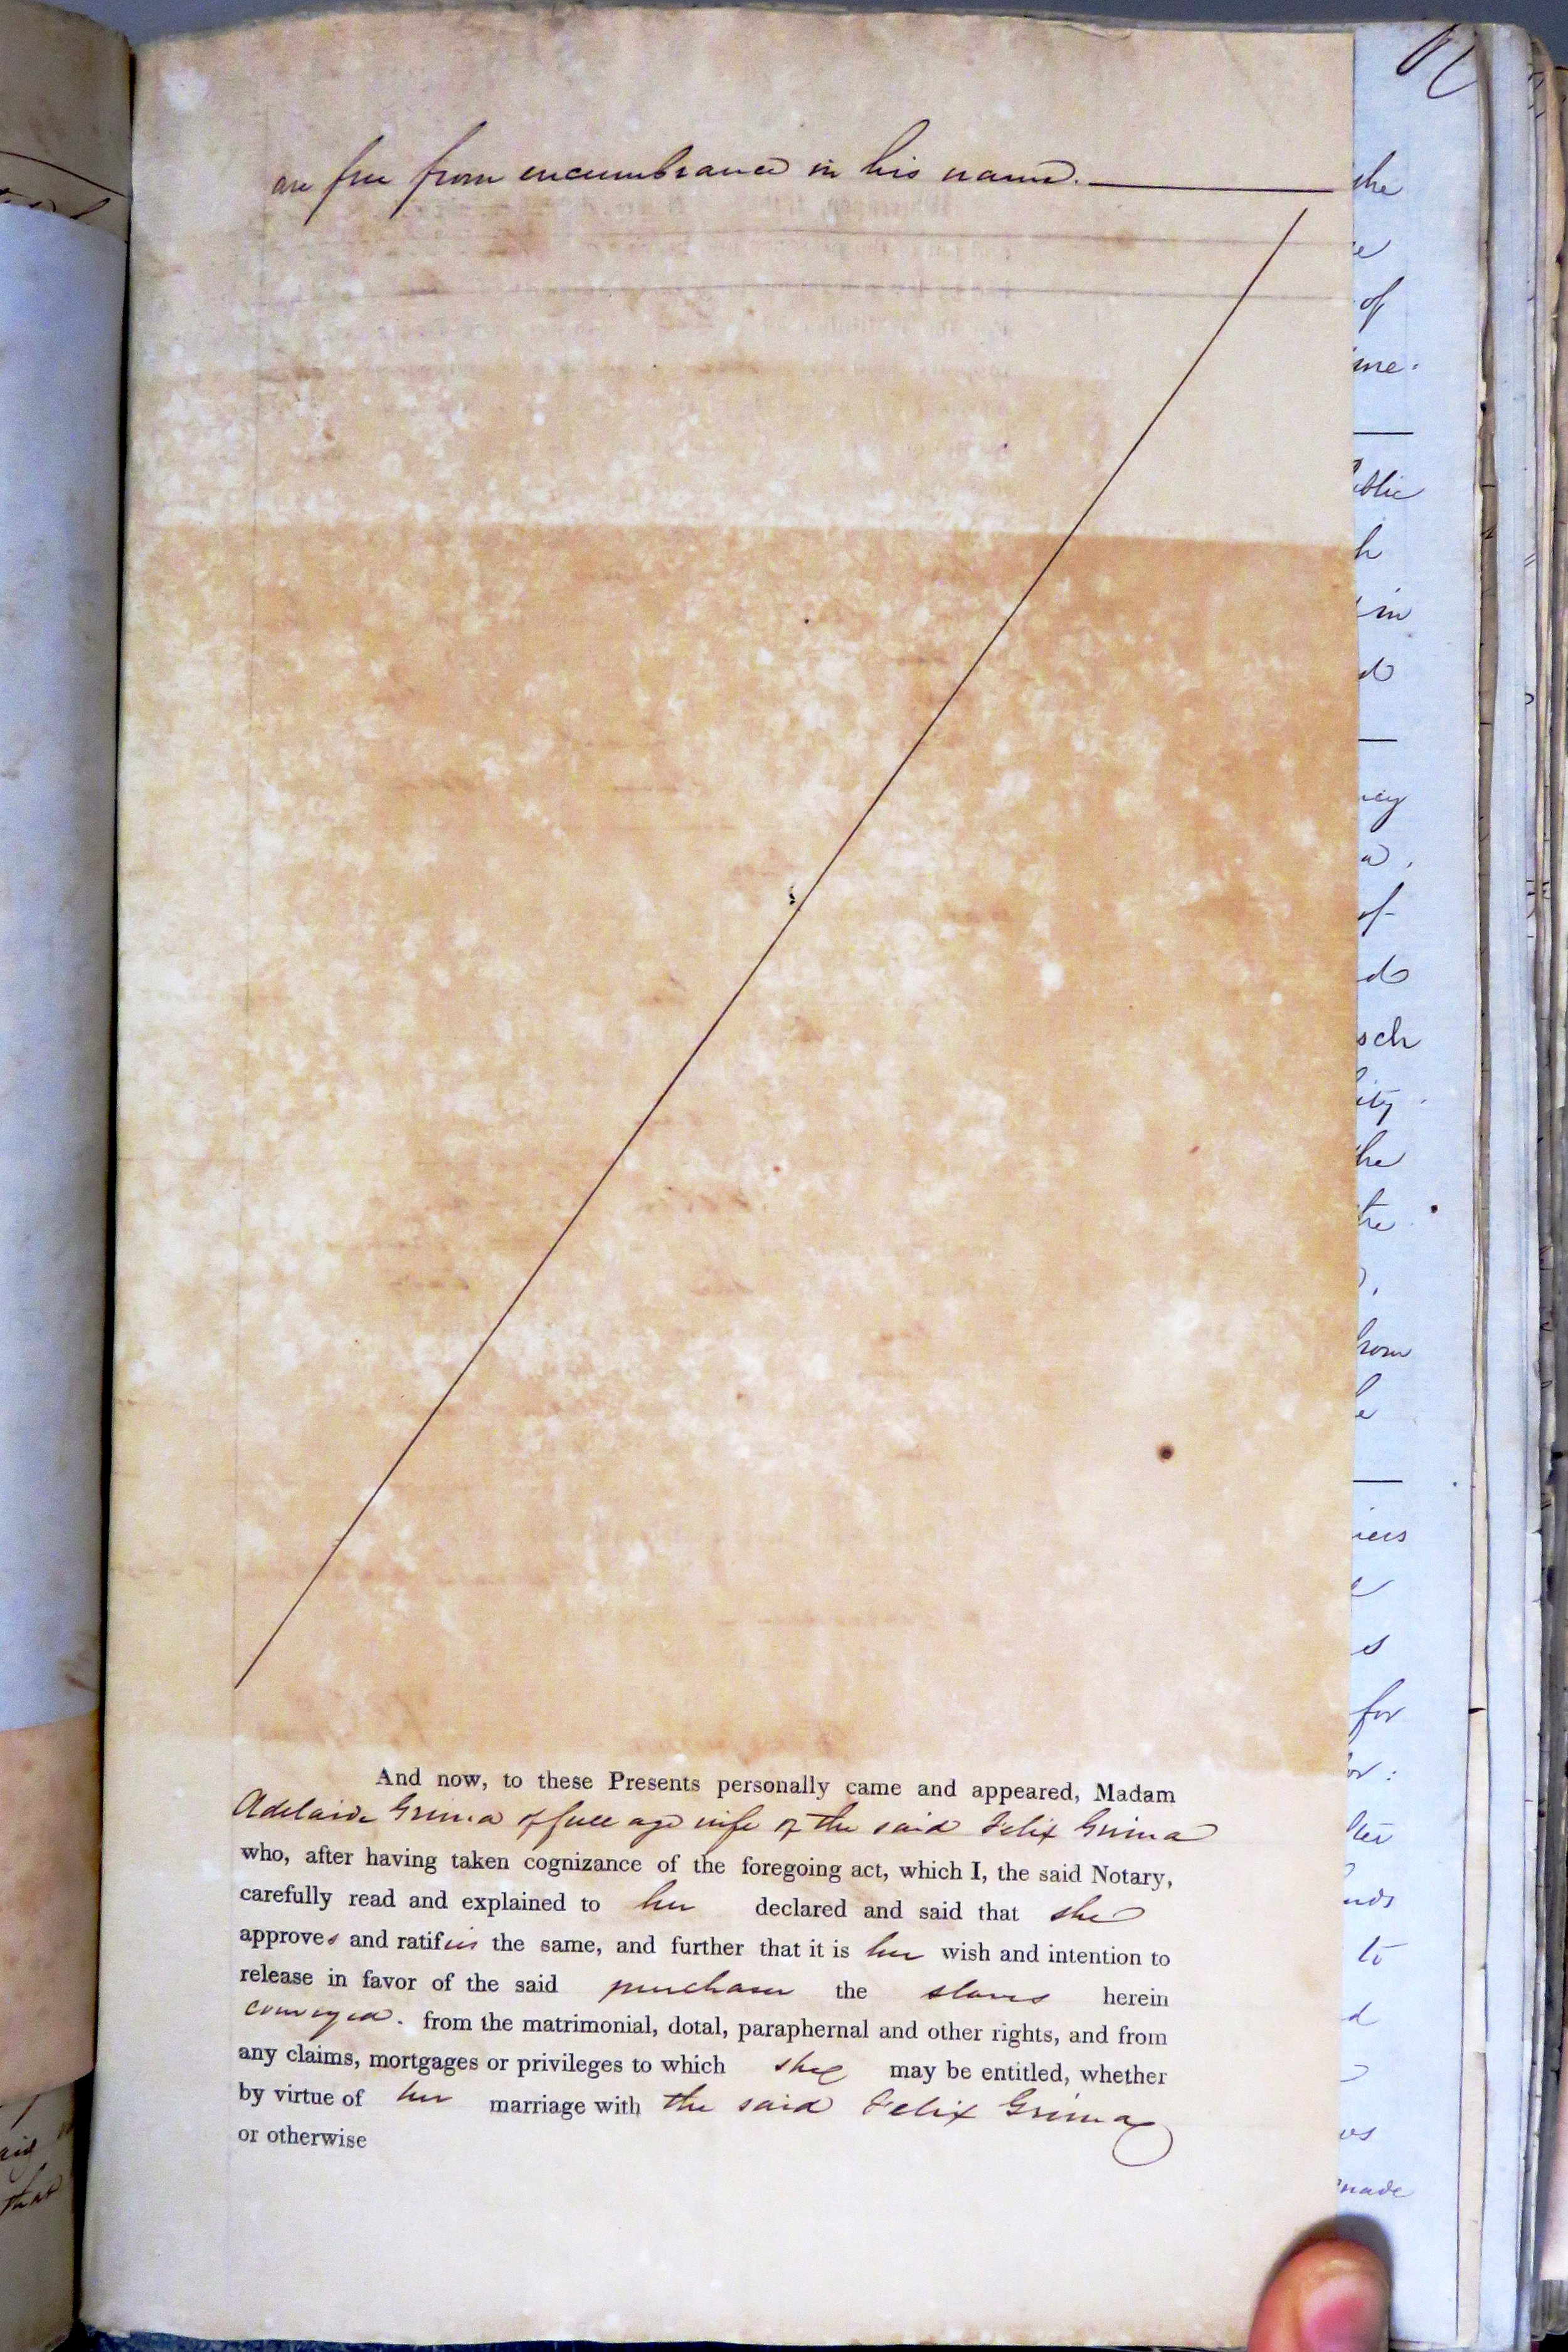 are free from encumbrance in his name.
And now, to these Presents personally came and appeared, Madam
Adelaide Grima of full age wife of the said Felix Grima
who, after having taken cognizance of the foregoing act, which I, the said Notary,
carefully read and explained to her declared and said that she
approves and ratifies the same, and further that it is her wish and intention to
release in favor of the said purchaser the slaves herein
conveyed. from the matrimonial, dotal, paraphernal and other rights, and from
any claims, mortgages or privileges to which she may be entitled, whether
by virtue of her marriage with the said Felix Grima
or otherwise
the
of
me.
in
of
sch
ity
the
from
for
to
made
that